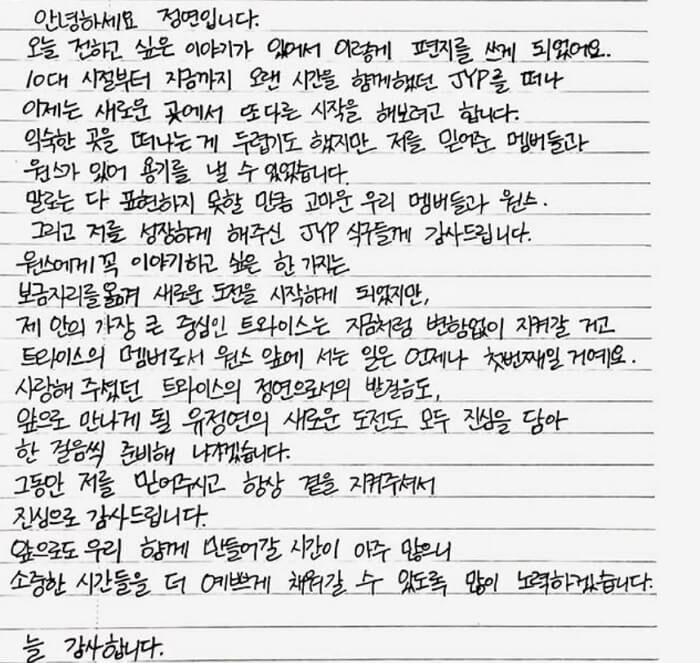 안녕하세요 정연입니다.
오늘 전하고 싶은 이야기가 있어서 이렇게 편지를 쓰게 되었어요.
10대 시절부터 지금까지 오랜 시간을 함께했던 JYP를 떠나
이제는 새로운 곳에서 또다른 시작을 해보려고 합니다.
익숙한 곳을 떠나는 게 두렵기도 했지만 저를 믿어준 멤버들과
원스가 있어 용기를 낼 수 있었습니다.
말로는 다 표현하지 못할 만큼 고마운 우리 멤버들과 원스.
그리고 저를 성장하게 해주신 JYP 식구들께 감사드립니다.
원스에게 꼭 이야기하고 싶은 한 가지는
보금자리를 옮겨 새로운 도전을 시작하게 되었지만,
제 안의 가장 큰 중심인 트와이스는 지금처럼 변함없이 지켜갈 거고
트와이스의 멤버로서 원스 앞에 서는 일은 언제나 첫번째일 거예요.
사랑해 주셨던 트와이스의 정연으로서의 발걸음도,
앞으로 만나게 될 유정연의 새로운 도전도 모두 진심을 담아
한 걸음씩 준비해 나가겠습니다.
그동안 저를 믿어주시고 항상 곁을 지켜주셔서
진심으로 감사드립니다.
앞으로도 우리 함께 만들어갈 시간이 아주 많으니
소중한 시간들을 더 예쁘게 채워갈 수 있도록 많이 노력하겠습니다.
늘 감사합니다.